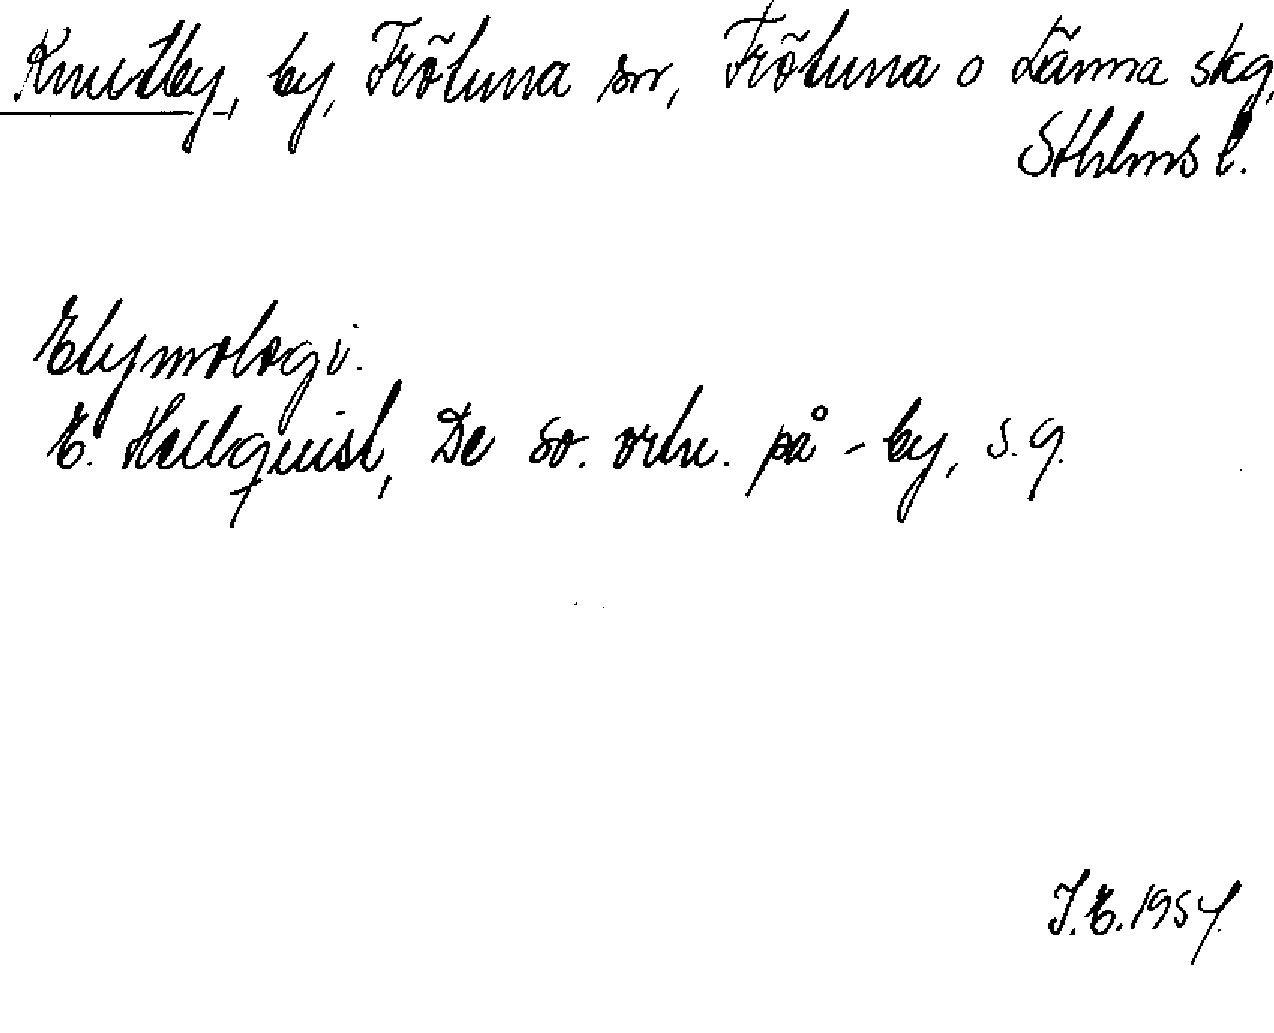 Knutby, by, Frötuna sn, Frötuna o Länna skg,
Sthlms l.
Etymologi.
E. Hellquist, De sv. ortn. på -by, s. 9.
I. E. 1954.